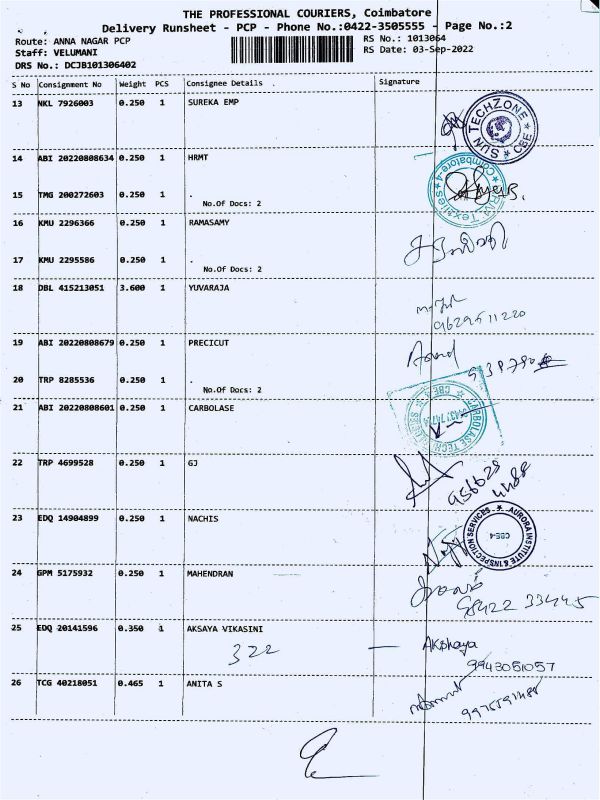 THE PROFESSIONAL COURIERS, Coimbatore
Delivery Runsheet - PCP - Phone No.:0422-3505555 - Page No.:2
Route: ANNA NAGAR PCP RS No.: 1013064
Staff: VELUMANI RS Date: 03-Sep-2022
DRS No.: DCJB101306402
S No Consignment No Weight PCS Consignee Details . Signature
13 NKL 7926003 0.250 1 SUREKA EMP
SUN TECHZONE * CBE *
14 ABI 20220808634 0.250 1 HRMT
Textiles * Coimbatore-4 *
15 TMG 200272603 0.250 1 .
No.Of Docs: 2
16 KMU 2296366 0.250 1 RAMASAMY
17 KMU 2295586 0.250 1 .
No.Of Docs: 2
18 DBL 415213051 3.600 1 YUVARAJA
9629511220
19 ABI 20220808679 0.250 1 PRECICUT
20 TRP 8285536 0.250 1 .
No.Of Docs: 2
21 ABI 20220808601 0.250 1 CARBOLASE
CBE-4
22 TRP 4699528 0.250 1 GJ
23 EDQ 14904899 0.250 1 NACHIS
AURORA INSTITUTE & INSPECTION SERVICES * CBE-4
24 GPM 5175932 0.250 1 MAHENDRAN
98422 33445
25 EDQ 20141596 0.350 1 AKSAYA VIKASINI
322
Akshaya
9943051057
26 TCG 40218051 0.465 1 ANITA S